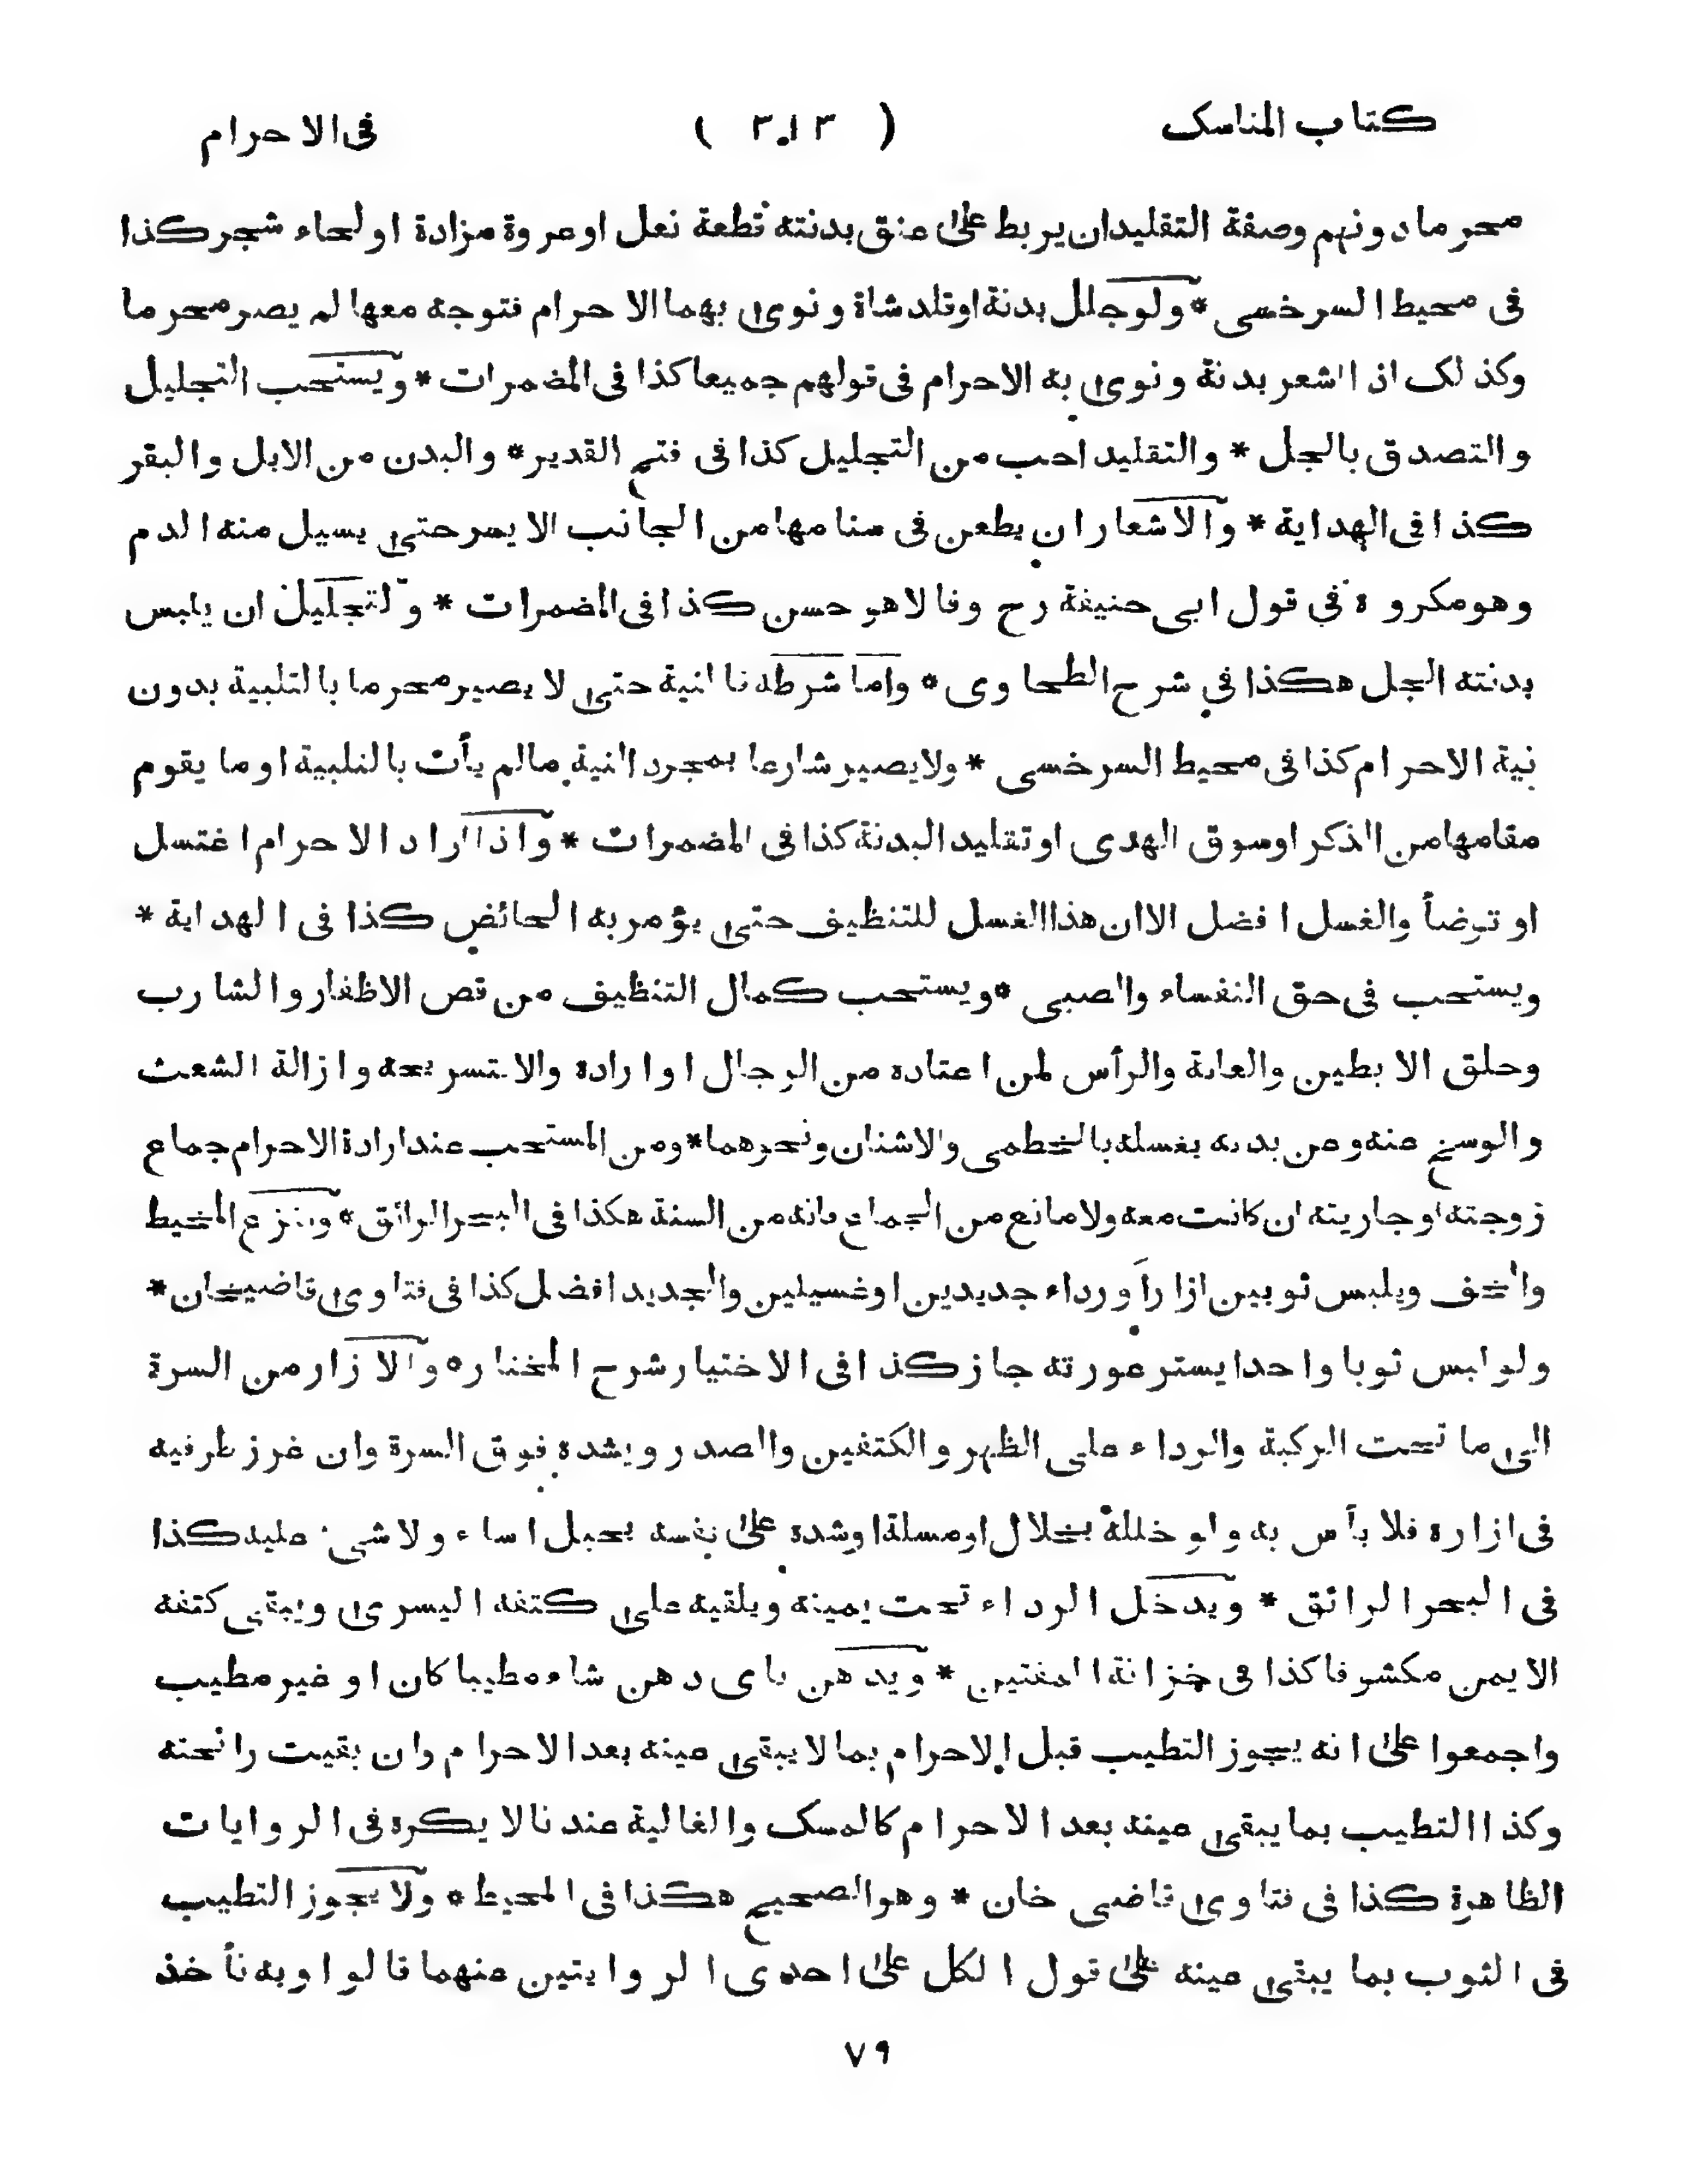 كتاب المناسك ( ٣١٣ ) فى الاحرام
محرما دونهم وصفة التقليد ان يربط على عنق بدنته قطعة نعل او عروة مزادة او لحاء شجر كذا
فى محيط السرخسى * ولو جلل بدنة او قلد شاة ونوى بهما الاحرام فتوجه معها لم يصر محرما
وكذلك اذا اشعر بدنة ونوى به الاحرام فى قولهم جميعا كذا فى المضمرات * ويستحب التجليل
والتصدق بالجل * والتقليد احب من التجليل كذا فى فتح القدير * والبدن من الابل والبقر
كذا فى الهداية * والاشعار ان يطعن فى سنامها من الجانب الايسر حتى يسيل منه الدم
وهو مكروه فى قول ابى حنيفة رح وقالا هو حسن كذا فى المضمرات * والتجليل ان يلبس
بدنته الجل هكذا فى شرح الطحاوى * واما شرطه فالنية حتى لا يصير محرما بالتلبية بدون
نية الاحرام كذا فى محيط السرخسى * ولا يصير شارعا بمجرد النية مالم يأت بالتلبية او ما يقوم
مقامها من الذكر او سوق الهدى او تقليد البدنة كذا فى المضمرات * واذا اراد الاحرام اغتسل
او توضأ والغسل افضل الا ان هذا الغسل للتنظيف حتى يؤمر به الحائض كذا فى الهداية *
ويستحب فى حق النفساء والصبى * ويستحب كمال التنظيف من قص الاظفار والشارب
وحلق الابطين والعانة والرأس لمن اعتاده من الرجال او اراده والا تسريحه وازالة الشعث
والوسخ عنه وعن بدنه بغسله بالخطمى والاشنان ونحوهما * ومن المستحب عند ارادة الاحرام جماع
زوجته او جاريته ان كانت معه ولا مانع من الجماع فانه من السنة هكذا فى البحر الرائق * وينزع المخيط
والخف ويلبس ثوبين ازارا ورداء جديدين او غسيلين والجديد افضل كذا فى فتاوى قاضيخان *
ولو لبس ثوبا واحدا يستر عورته جاز كذا فى الاختيار شرح المختار * والازار من السرة
الى ما تحت الركبة والرداء على الظهر والكتفين والصدر ويشده فوق السرة وان غرز طرفيه
فى ازاره فلا بأس به ولو خلله بخلال او مسلة او شده على نفسه بحبل اساء ولا شىء عليه كذا
فى البحر الرائق * ويدخل الرداء تحت يمينه ويلقيه على كتفه اليسرى ويبقى كتفه
الايمن مكشوفا كذا فى خزانة المفتين * ويدهن باى دهن شاء مطيبا كان او غير مطيب
واجمعوا على انه يجوز التطيب قبل الاحرام بما لا يبقى عينه بعد الاحرام وان بقيت رائحته
وكذا التطيب بما يبقى عينه بعد الاحرام كالمسك والغالية عندنا لا يكره فى الروايات
الظاهرة كذا فى فتاوى قاضى خان * وهو الصحيح هكذا فى المحيط * ولا يجوز التطيب
فى الثوب بما يبقى عينه على قول الكل على احدى الروايتين عنهما قالوا وبه نأخذ
٧٩